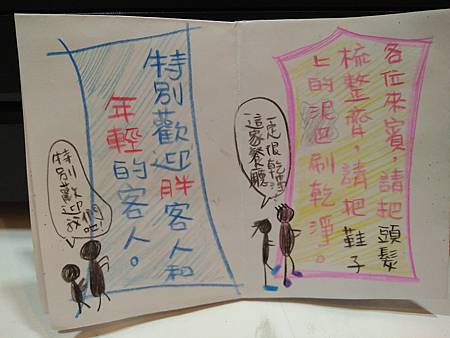 各位來賓,請把頭髮
梳整齊,請把鞋子
上的泥巴刷乾淨。
一定很乾淨
這家餐廳
特別歡迎胖客人和
年輕的客人。
特別歡迎
我們吧!